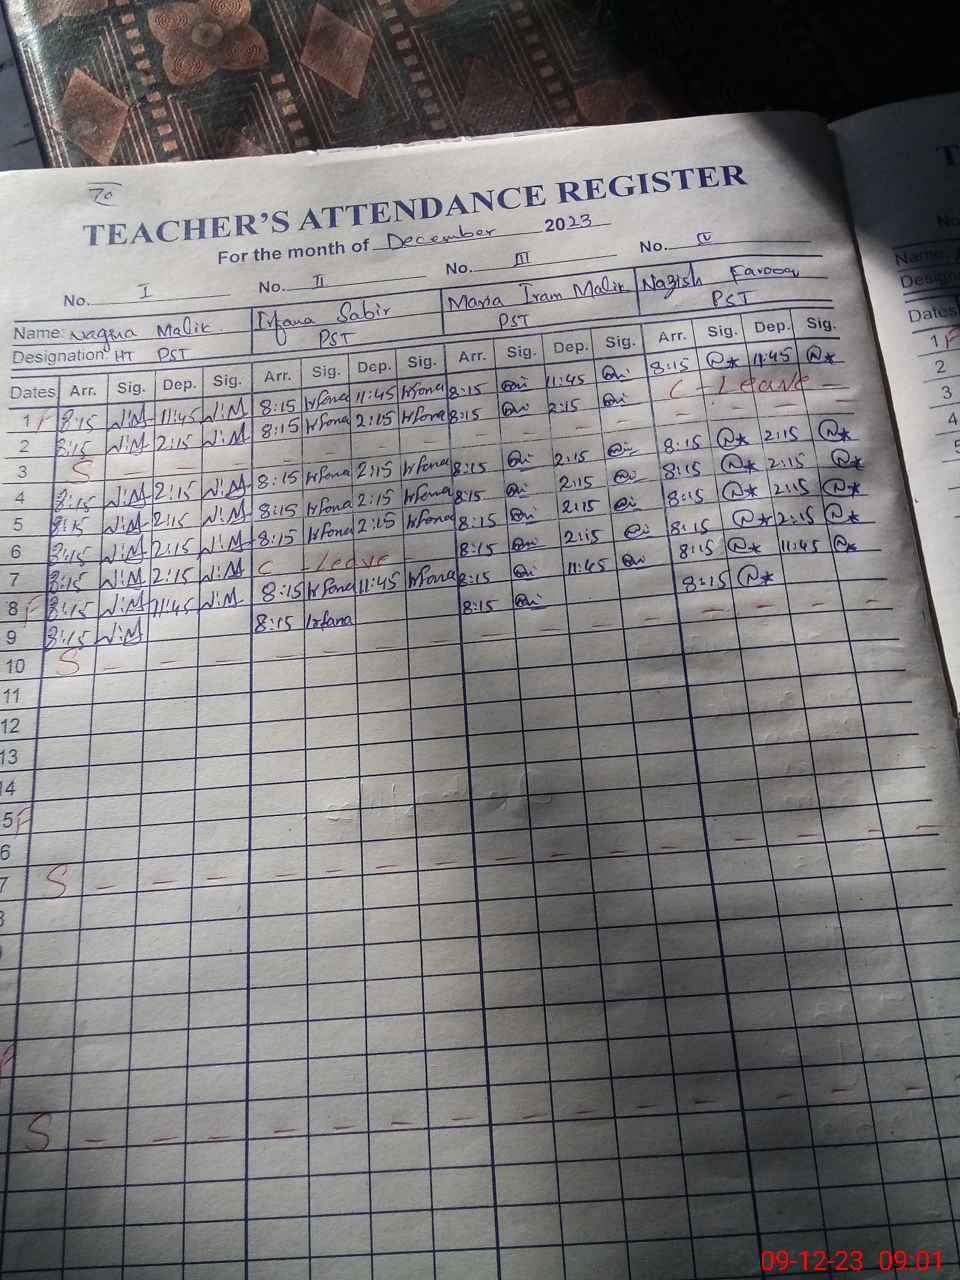 70
TEACHER'S ATTENDANCE REGISTER
For the month of December 2023
No. I No. II No. III No. IV
Name: Nagina Malik Irfana Sabir Maria Iram Malik Nazish Farooq
Designation HT PST PST PST PST
Dates Arr. Sig. Dep. Sig. Arr. Sig. Dep. Sig. Arr. Sig. Dep. Sig. Arr. Sig. Dep. Sig.
1 F 8:15 N.M 11:45 N.M 8:15 Irfana 11:45 Irfana 8:15 11:45 8:15 11:45
2 8:15 N.M 2:15 N.M 8:15 Irfana 2:15 Irfana 8:15 2:15 C - Leave -
3 S - - - - - - - - - - - - - - -
4 8:15 N.M 2:15 N.M 8:15 Irfana 2:15 Irfana 8:15 2:15 8:15 2:15
5 8:15 N.M 2:15 N.M 8:15 Irfana 2:15 Irfana 8:15 2:15 8:15 2:15
6 8:15 N.M 2:15 N.M 8:15 Irfana 2:15 Irfana 8:15 2:15 8:15 2:15
7 8:15 N.M 2:15 N.M C - Leave - 8:15 2:15 8:15 2:15
8 F 8:15 N.M 11:45 N.M 8:15 Irfana 11:45 Irfana 8:15 11:45 8:15 11:45
9 8:15 N.M 8:15 Irfana 8:15 8:15
10 S - - - - - - - - - - - - - - -
11
12
13
14
5 F
6
7 S - - - - - - - - - - - - - - -
8
S - - - - - - - - - - - - - - -
T
No
Name:
Design
Dates
1 F
2
3
4
5
09-12-23 09:01